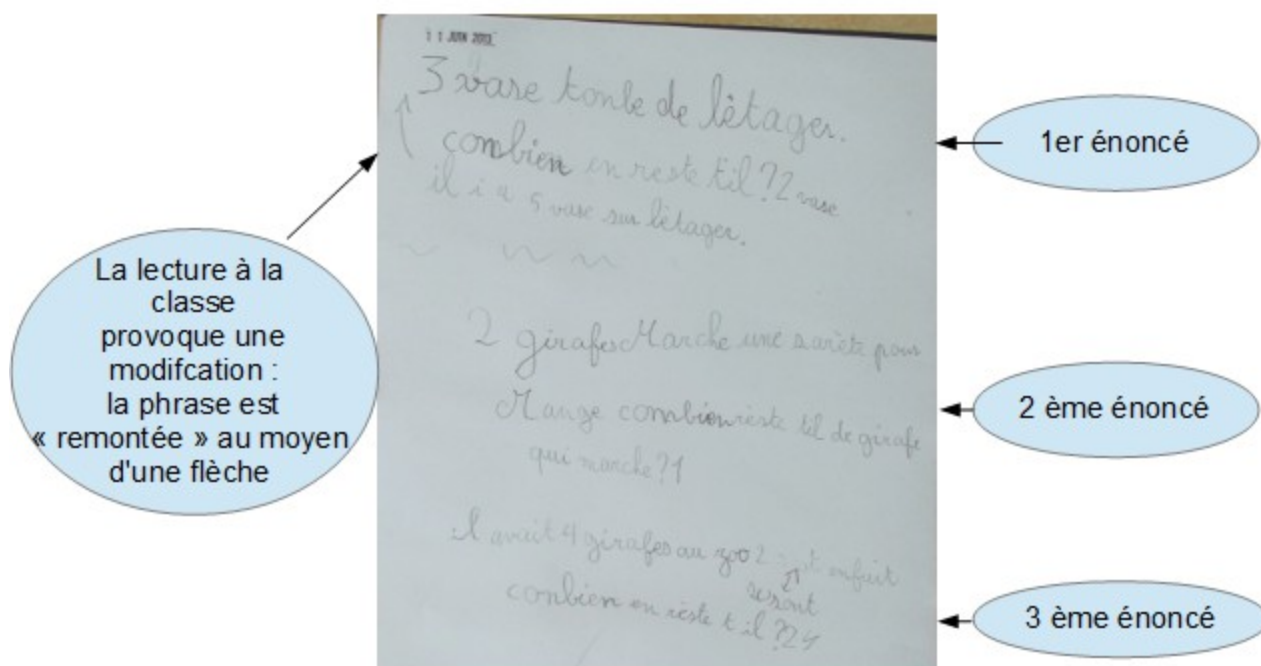 11 JUIN 2012
3 vase tonbe de lètager.
combien en reste til ? 2 vase
il i a 5 vase sur lètager.
2 girafes Marche une sarète pour
Mange combien rèste til de girafe
qui marche ? 1
il avait 4 girafes au zoo 2 enfuit
se sont
conbien en rèste t il ? 2
La lecture à la
classe
provoque une
modifcation :
la phrase est
« remontée » au moyen
d'une flèche
1er énoncé
2 ème énoncé
3 ème énoncé